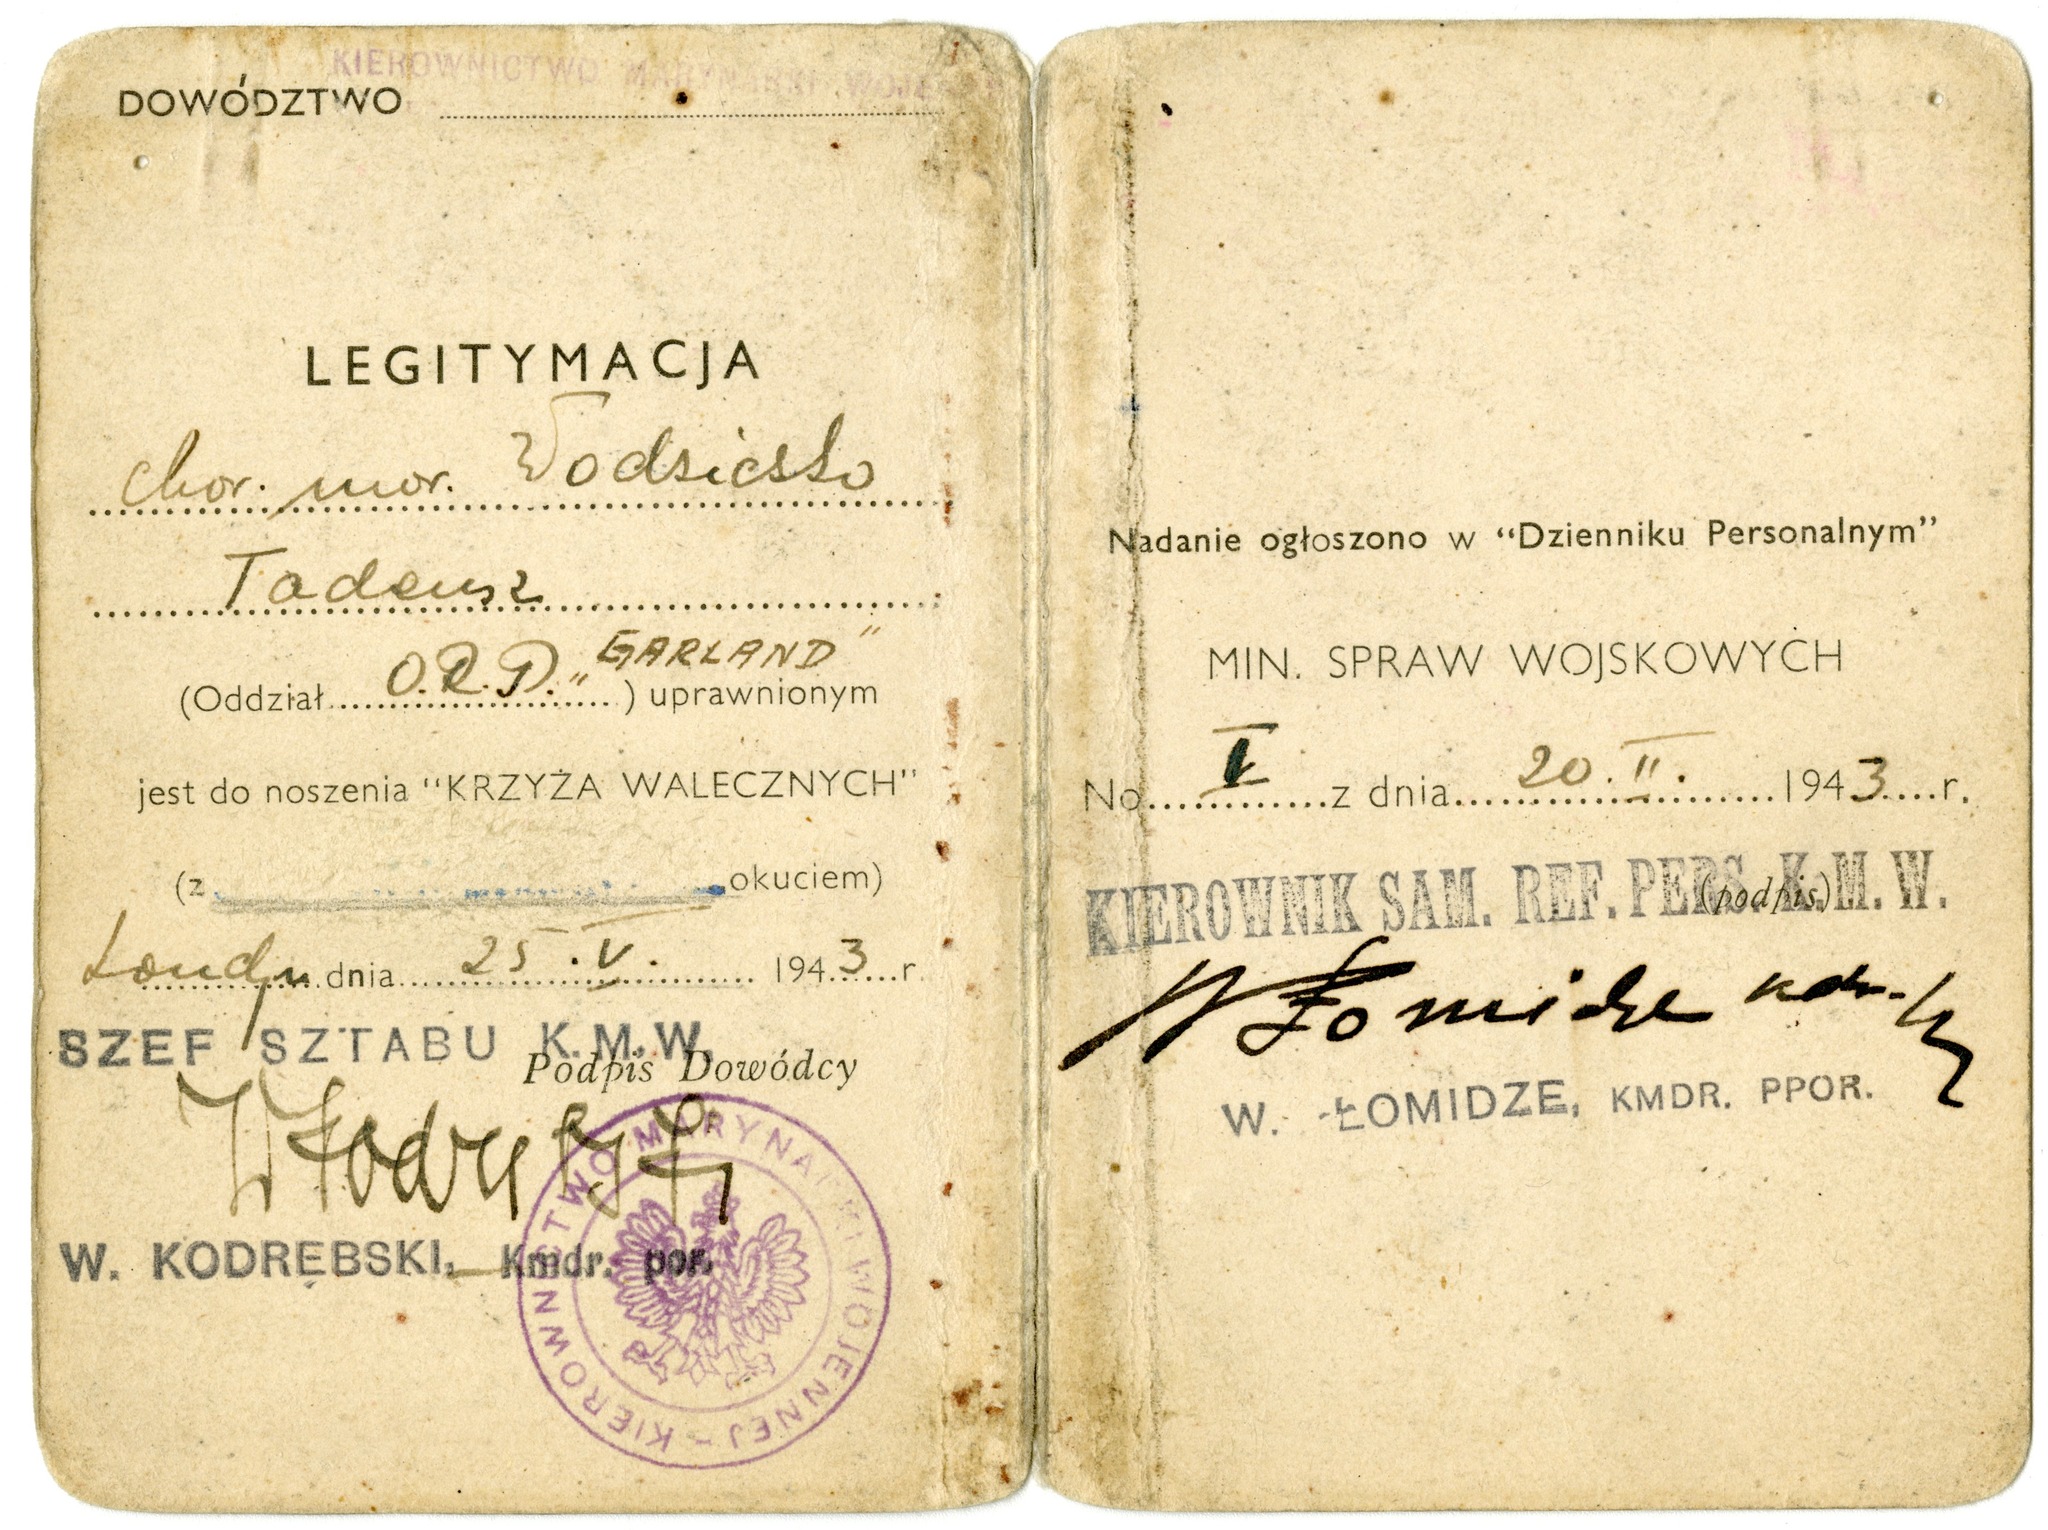 KIEROWNICTWO MARYNARKI WOJE
DOWÓDZTWO
LEGITYMACJA
chor. mar. Wodziczko
Tadeusz
(Oddział O.R.P. „GARLAND”) uprawnionym
jest do noszenia “KRZYŻA WALECZNYCH”
(z okuciem)
Londyn dnia 25.V. 1943 r.
SZEF SZTABU K.M.W.
Podpis Dowódcy
W. KODRĘBSKI, Kmdr. por.
KIEROWNICTWO MARYNARKI WOJENNEJ -
Nadanie ogłoszono w “Dzienniku Personalnym”
MIN. SPRAW WOJSKOWYCH
No I z dnia 20.II. 1943 r.
KIEROWNIK SAM. REF. PERS. K.M.W.
(podpis)
W Łomidze
W. ŁOMIDZE, KMDR. PPOR.